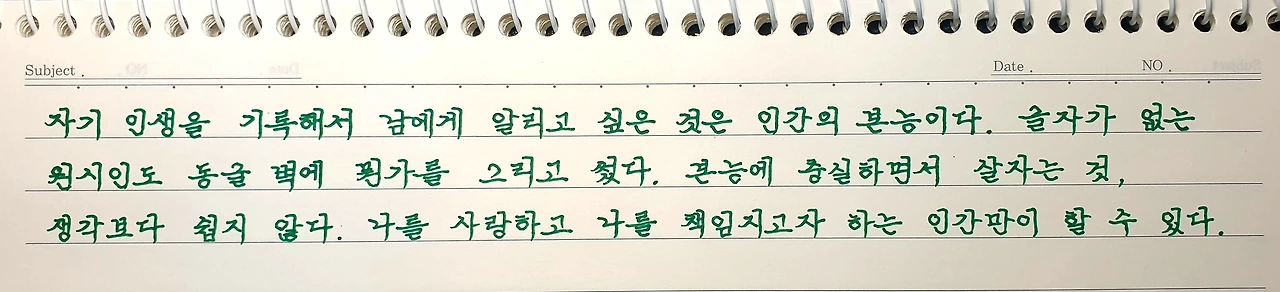 Subject .
Date .
NO .
자기 인생을 기록해서 남에게 알리고 싶은 것은 인간의 본능이다. 글자가 없는
원시인도 동굴 벽에 뭔가를 그리고 썼다. 본능에 충실하면서 살자는 것,
생각보다 쉽지 않다. 나를 사랑하고 나를 책임지고자 하는 인간만이 할 수 있다.